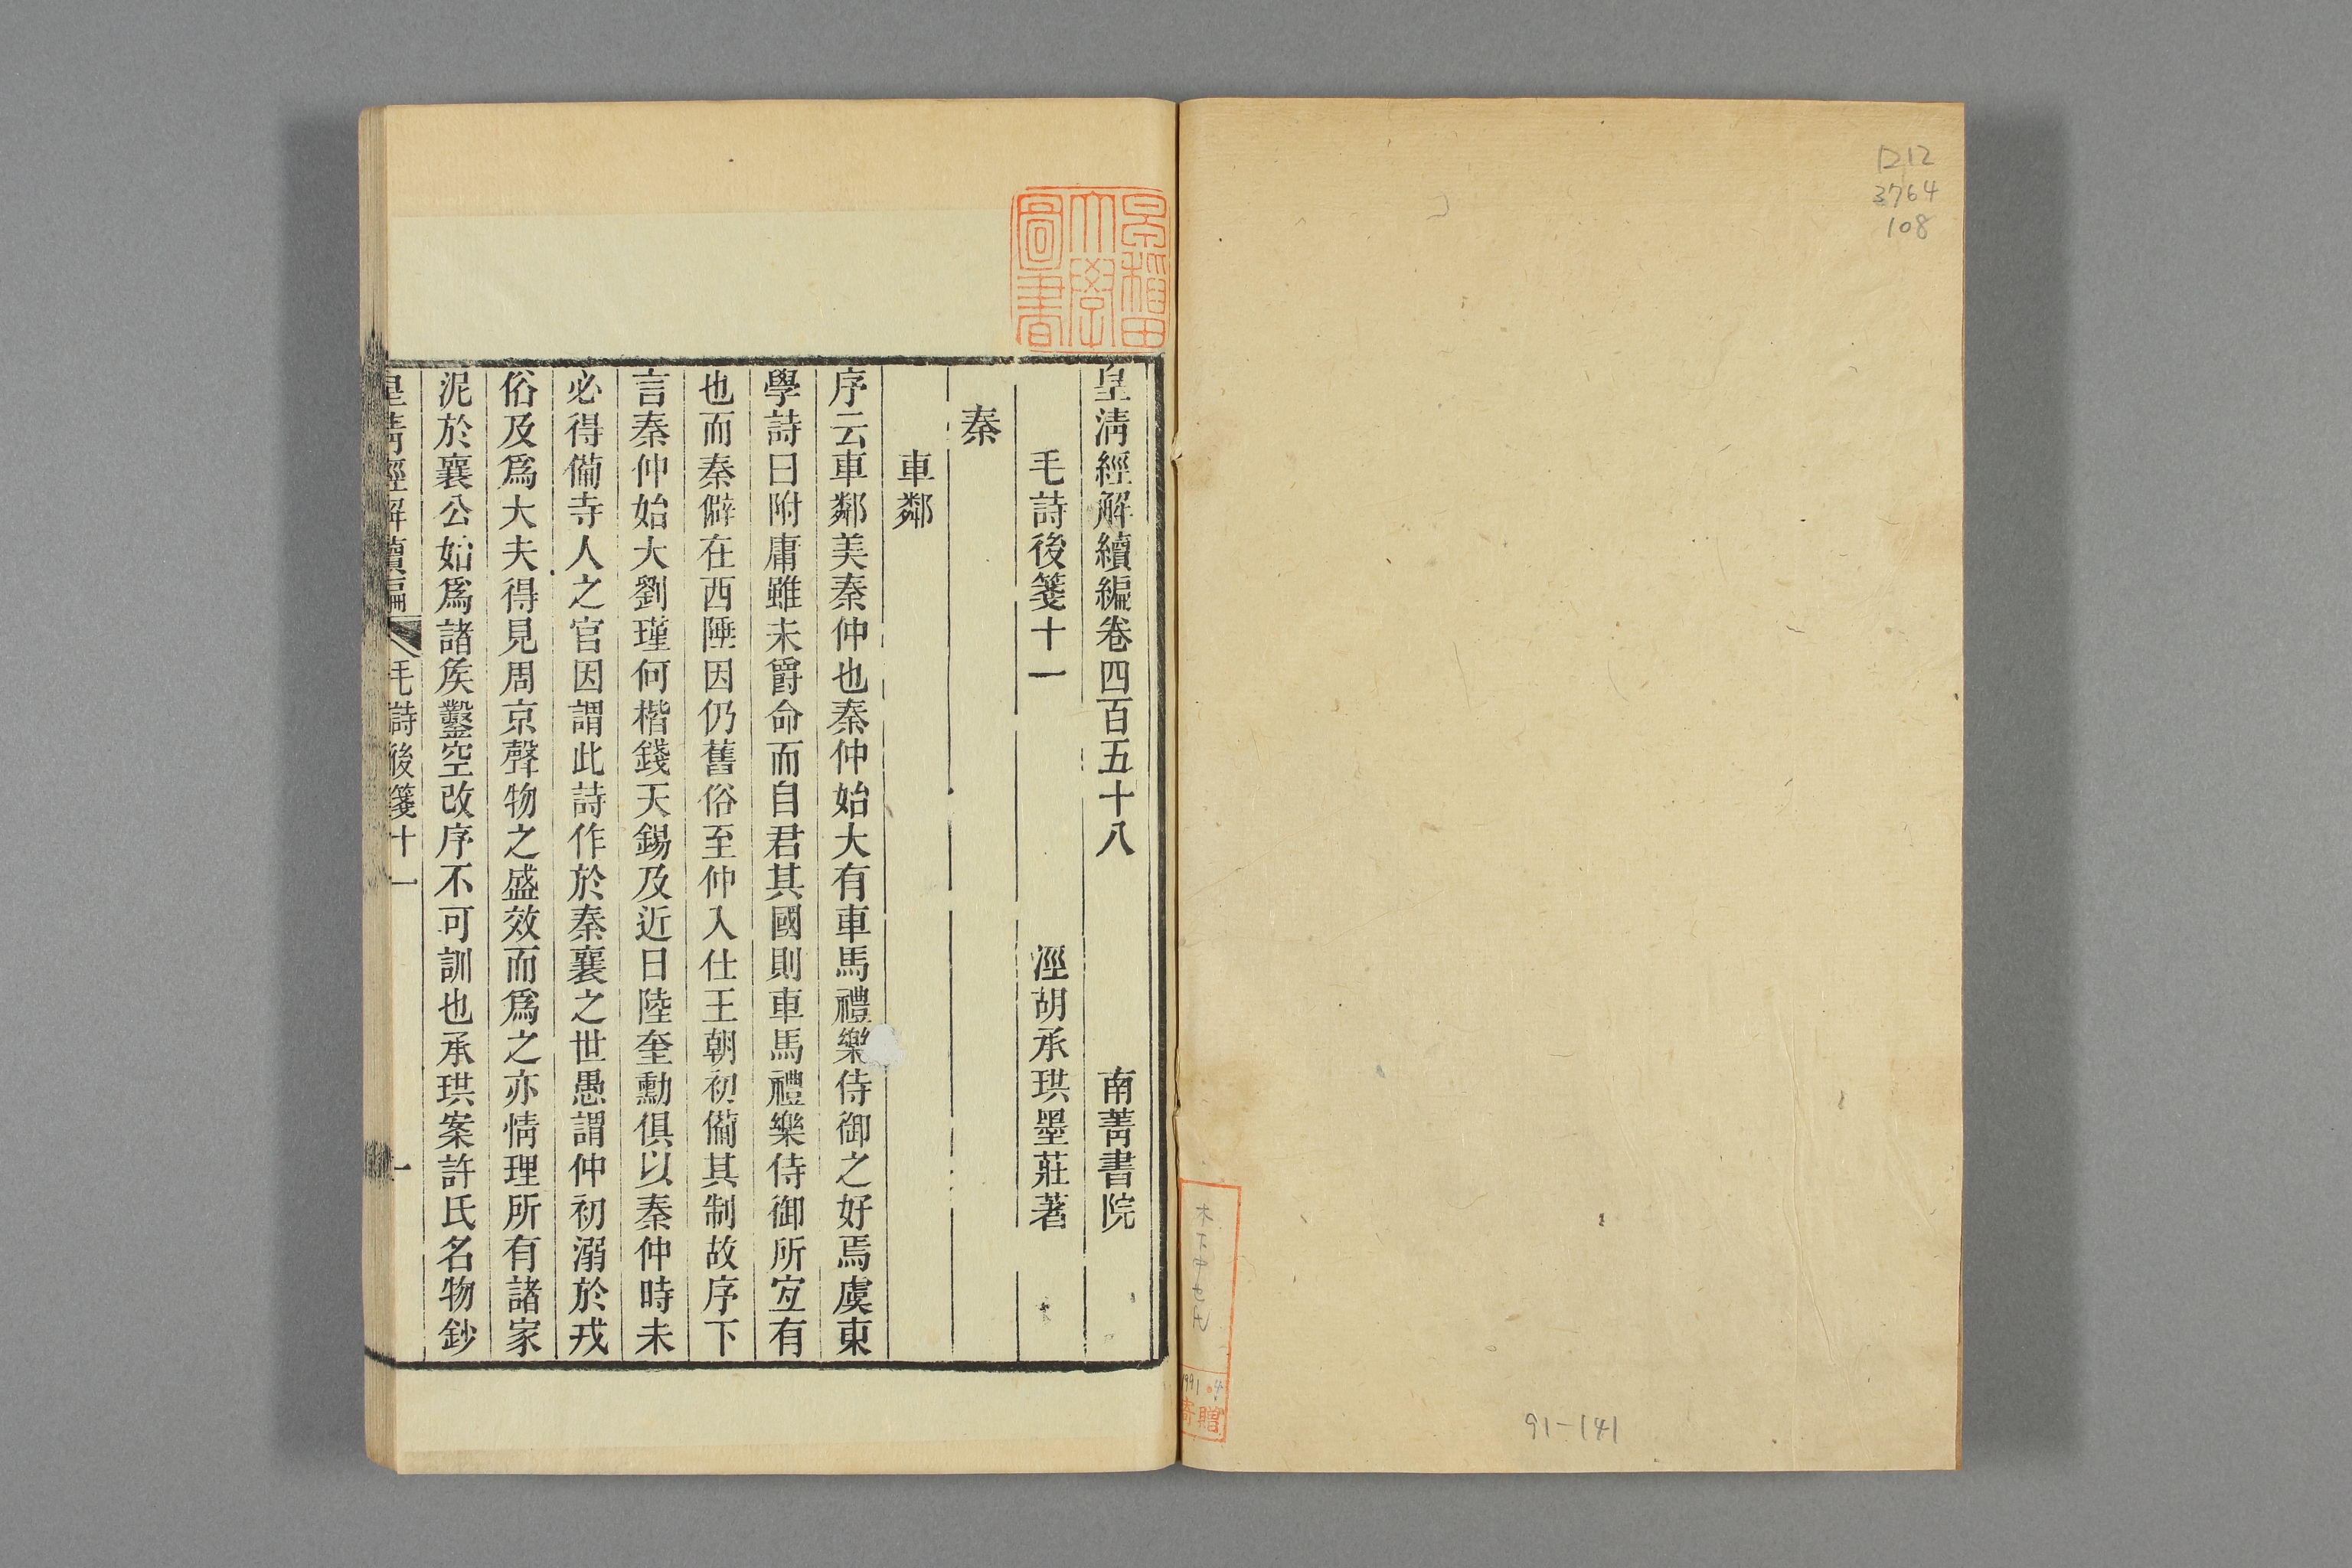 D12
3764
108
91-141
寄贈
早稲田
大學
圖書
皇清經解續編卷四百五十八　南菁書院
毛詩後箋十一　涇胡承珙墨莊著
秦
車鄰
序云車鄰美秦仲也秦仲始大有車馬禮樂侍御之好焉虞東
學詩曰附庸雖未爵命而自君其國則車馬禮樂侍御所宐有
也而秦僻在西陲因仍舊俗至仲入仕王朝初備其制故序下
言秦仲始大劉瑾何楷錢天錫及近日陸奎勳俱以秦仲時未
必得備寺人之官因謂此詩作於秦襄之世愚謂仲初溺於戎
俗及爲大夫得見周京聲物之盛效而爲之亦情理所有諸家
泥於襄公始爲諸矦鑿空改序不可訓也承珙案許氏名物鈔
皇清經解續編　毛詩後箋十一　一